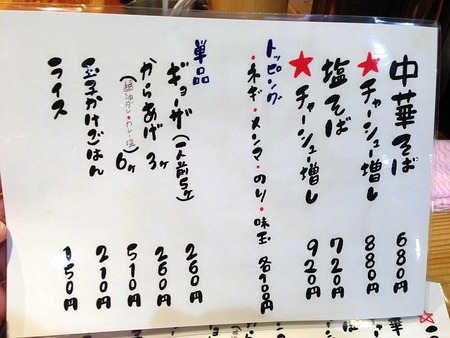 中華そば 680円
★チャーシュー増し 880円
塩そば 720円
★チャーシュー増し 920円
トッピング
・ネギ・メンマ・のり・味玉 各100円
単品
ギョーザ(一人前5ヶ) 260円
からあげ 3ヶ 260円
(醤油ダレ・カレー塩) 6ヶ 510円
玉子かけごはん 210円
ライス 150円